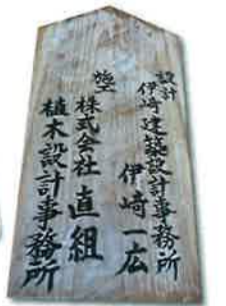 設計
伊﨑建築設計事務所
伊﨑一広
施工
株式会社直組
植木設計事務所